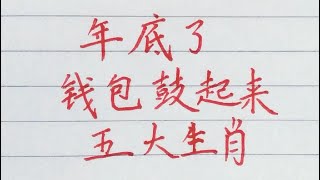 年底了
钱包鼓起来
五大生肖